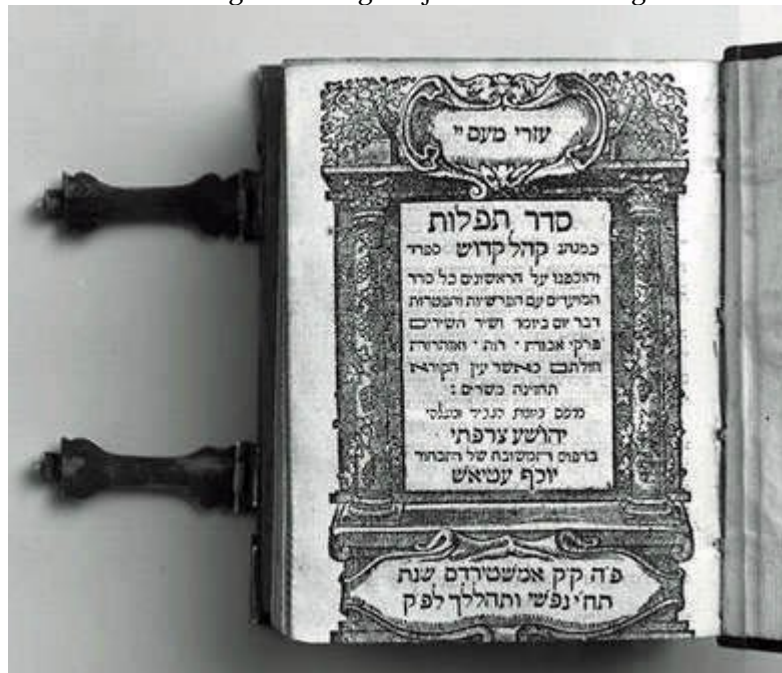 עזרי מעם יי
סדר תפלות
כמנהג קהל קדוש ספרד
והוספנו על הראשונים כל סדר
המועדים עם הפרשיות והפטרות
דבר יום ביומו ושיר השירים
פרקי אבות רות ואזהרות
זולתם כאשר עין הקורא
תחזינה משרים :
נדפס
יהושע צרפתי
בדפוס של הבחור
יוסף עטיאש
פ״ה ק״ק אמשטירדם שנת
תח״י נפשי ותהללך לפ״ק